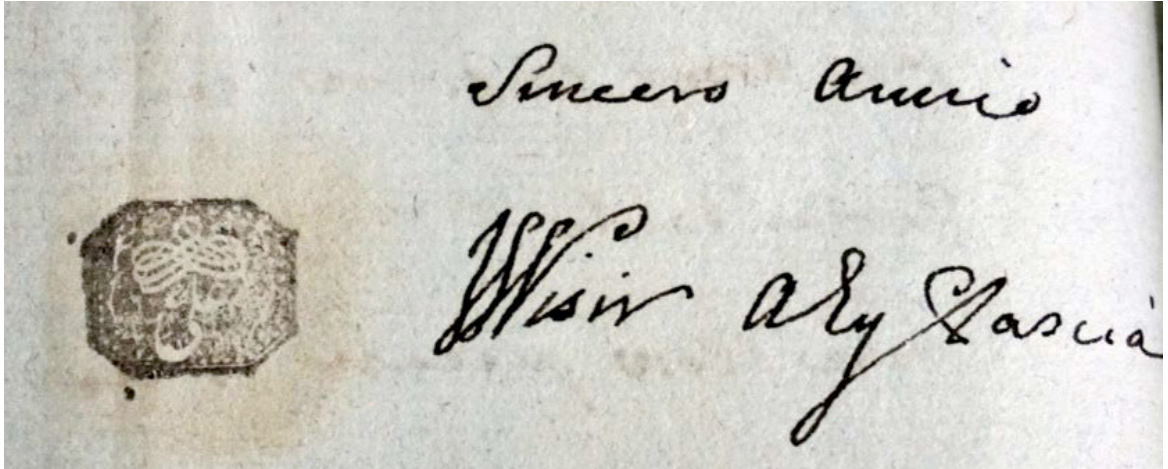 Sincero Amico
Wisir Aly Pascià